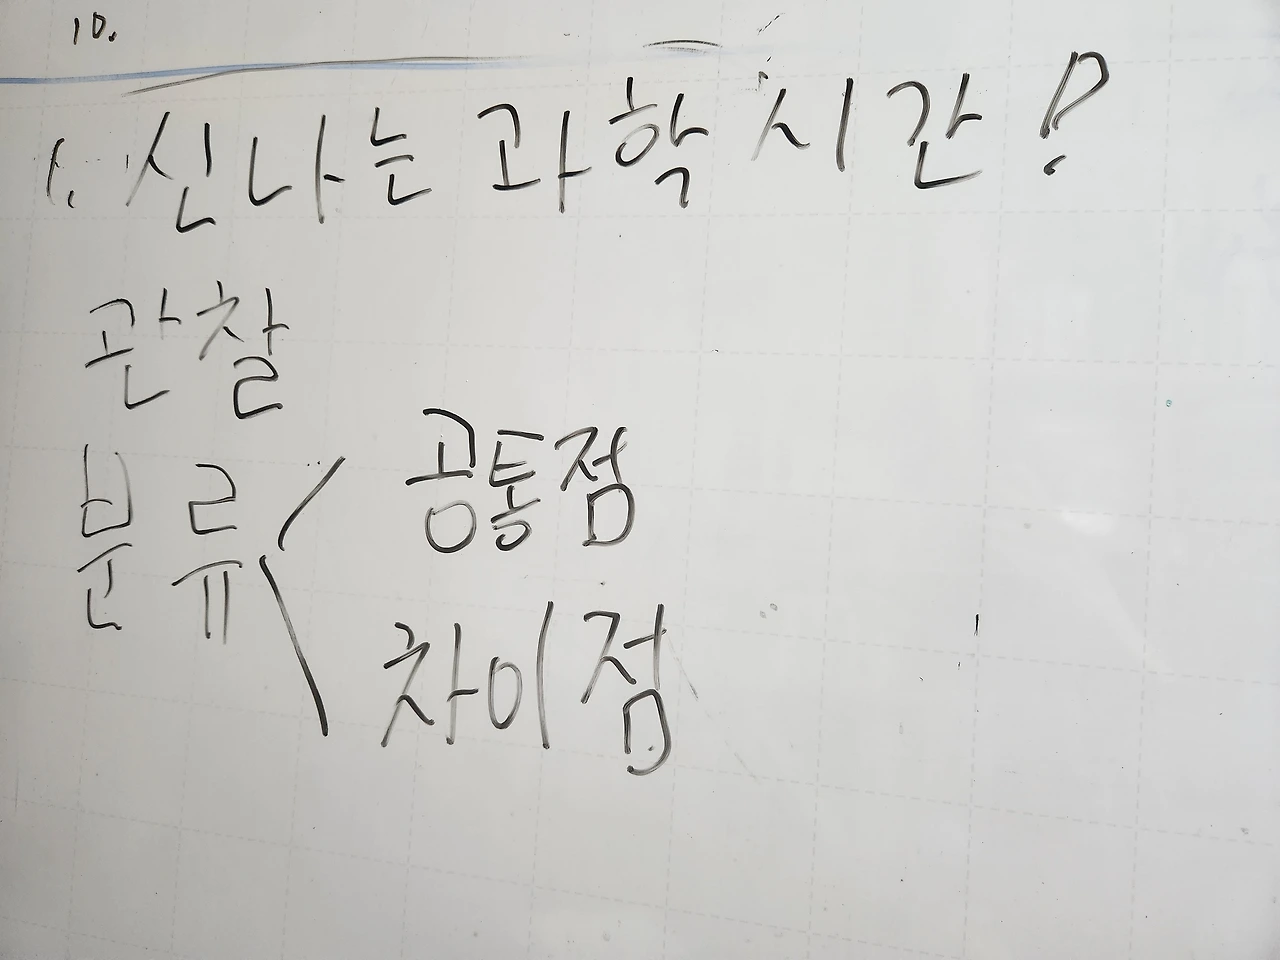 10.
1. 신나는 과학 시간!
관찰
분류 < 공통점
차이점